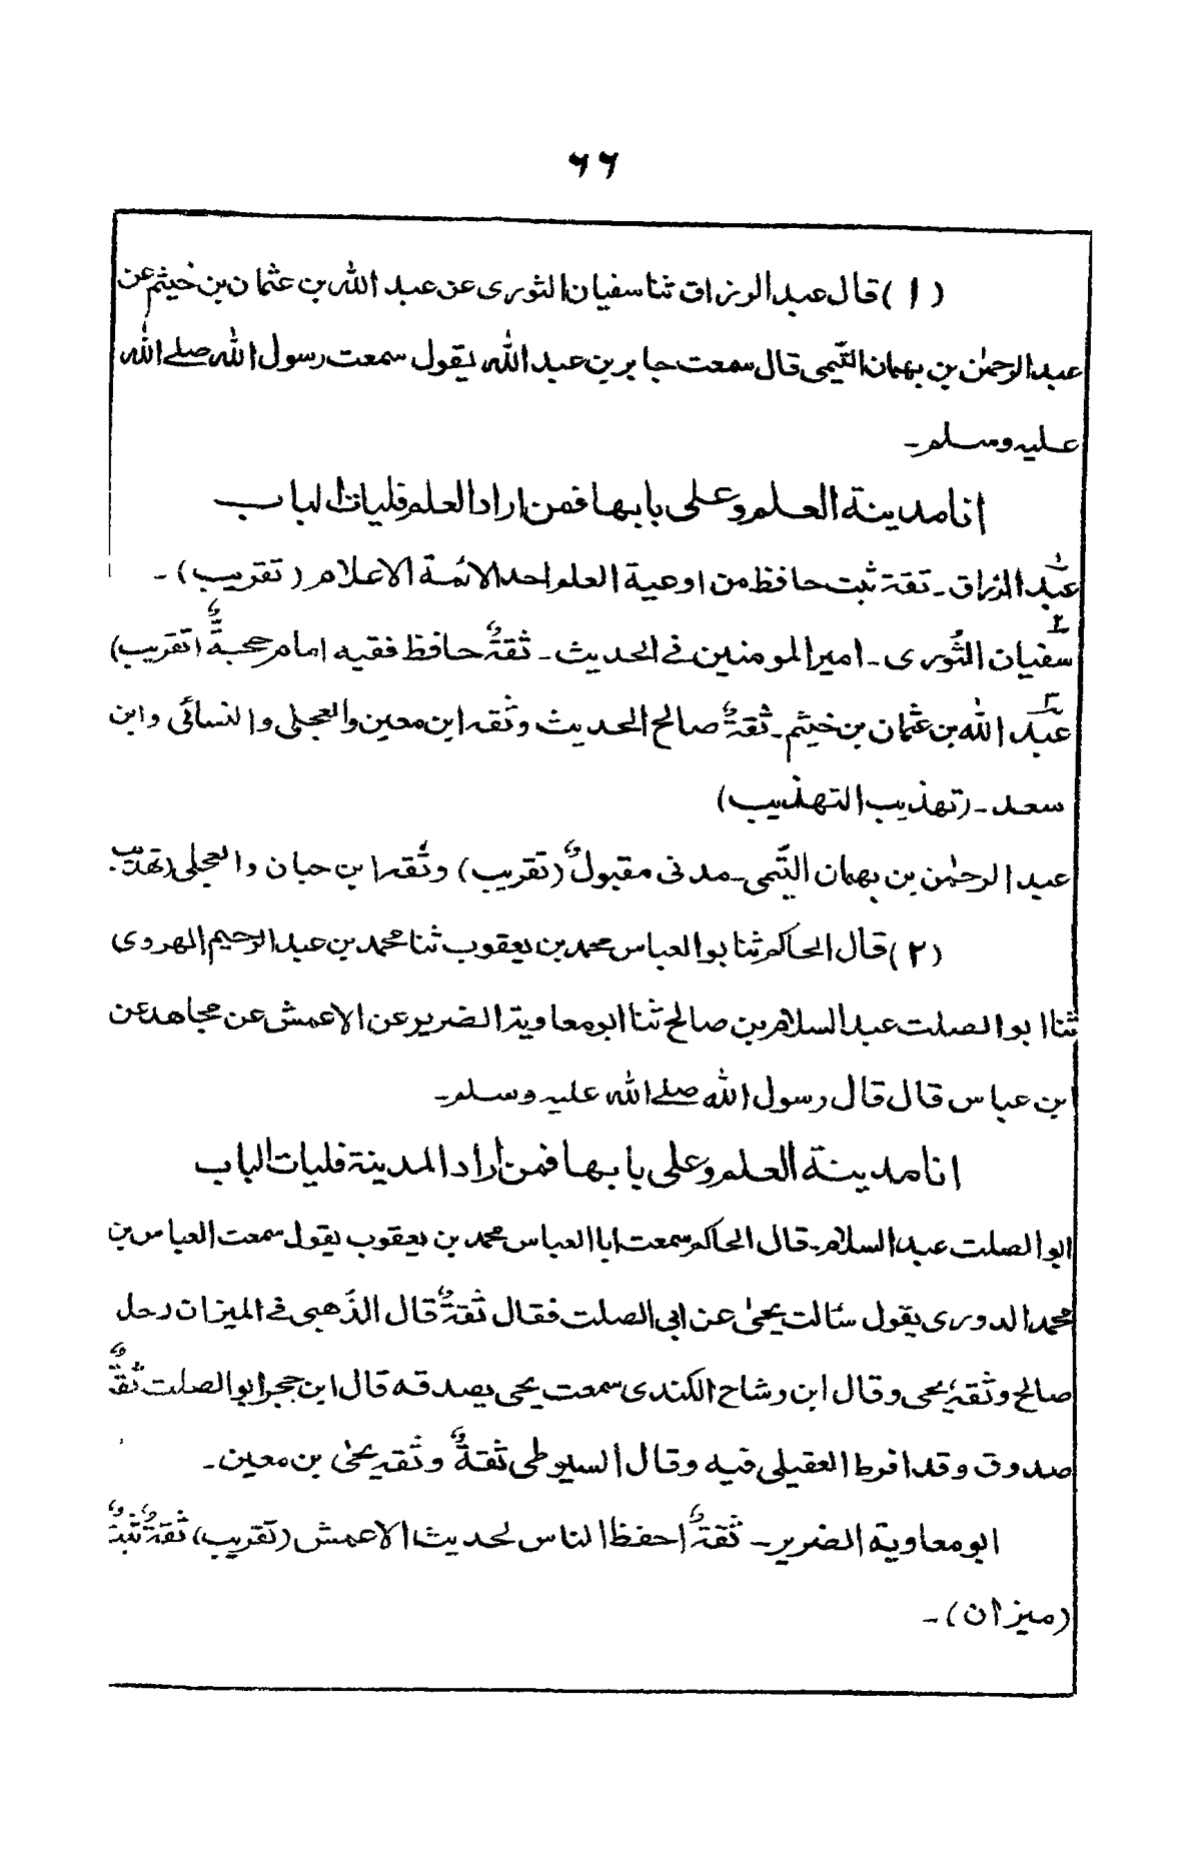 ٦٦
(١) قال عبد الرزاق ثنا سفيان الثوری عن عبد اللّٰه بن عثمان بن خیثم عن
عبد الرحمٰن بن بهمان التّیمی قال سمعت جابر بن عبد اللّٰه یقول سمعت رسول اللّٰه صلے اللّٰه
علیه وسلم۔
انا مدینة العلم وعلی بابها فمن اراد العلم فلیات الباب
عبد الرزاق۔ ثقة ثبت حافظ من اوعیة العلم احد الائمة الاعلام (تقریب)۔
سفیان الثوری۔ امیر المومنین فی الحدیث۔ ثقةٌ حافظ فقیه امام حجةٌ (تقریب)
عبد اللّٰه بن عثمان بن خیثم۔ ثقةٌ صالح الحدیث وثقه ابن معین والعجلی والنسائی وابن
سعد۔ (تهذیب التهذیب)
عبد الرحمٰن بن بهمان التّیمی۔ مدنی مقبولٌ (تقریب) وثقه ابن حبان والعجلی (تهذیب
(٢) قال الحاکم ثنا بو العباس محمد بن یعقوب ثنا محمد بن عبد الرحیم الهروی
ثنا ابو الصلت عبد السلام بن صالح ثنا ابو معاویة الضریر عن الاعمش عن مجاهد عن
ابن عباس قال قال رسول اللّٰه صلے اللّٰه علیه وسلم۔
انا مدینة العلم وعلی بابها فمن اراد المدینة فلیات الباب
ابو الصلت عبد السلام۔ قال الحاکم سمعت ابا العباس محمد بن یعقوب یقول سمعت العباس بن
محمد الدوری یقول سئالت یحیٰ عن ابی الصلت فقال ثقةٌ قال الذّهبی فی المیزان رجل
صالح وثقه یحی وقال ابن وشاح الکندی سمعت یحی یصدقه قال ابن حجر ابو الصلت ثقةٌ
صدوق وقد افرط العقیلی فیه وقال السیوطی ثقةٌ وثقه یحیٰ بن معین۔
ابو معاویة الضریر۔ ثقةٌ احفظ الناس لحدیث الاعمش (تقریب) ثقةٌ ثبتٌ
(میزان)۔